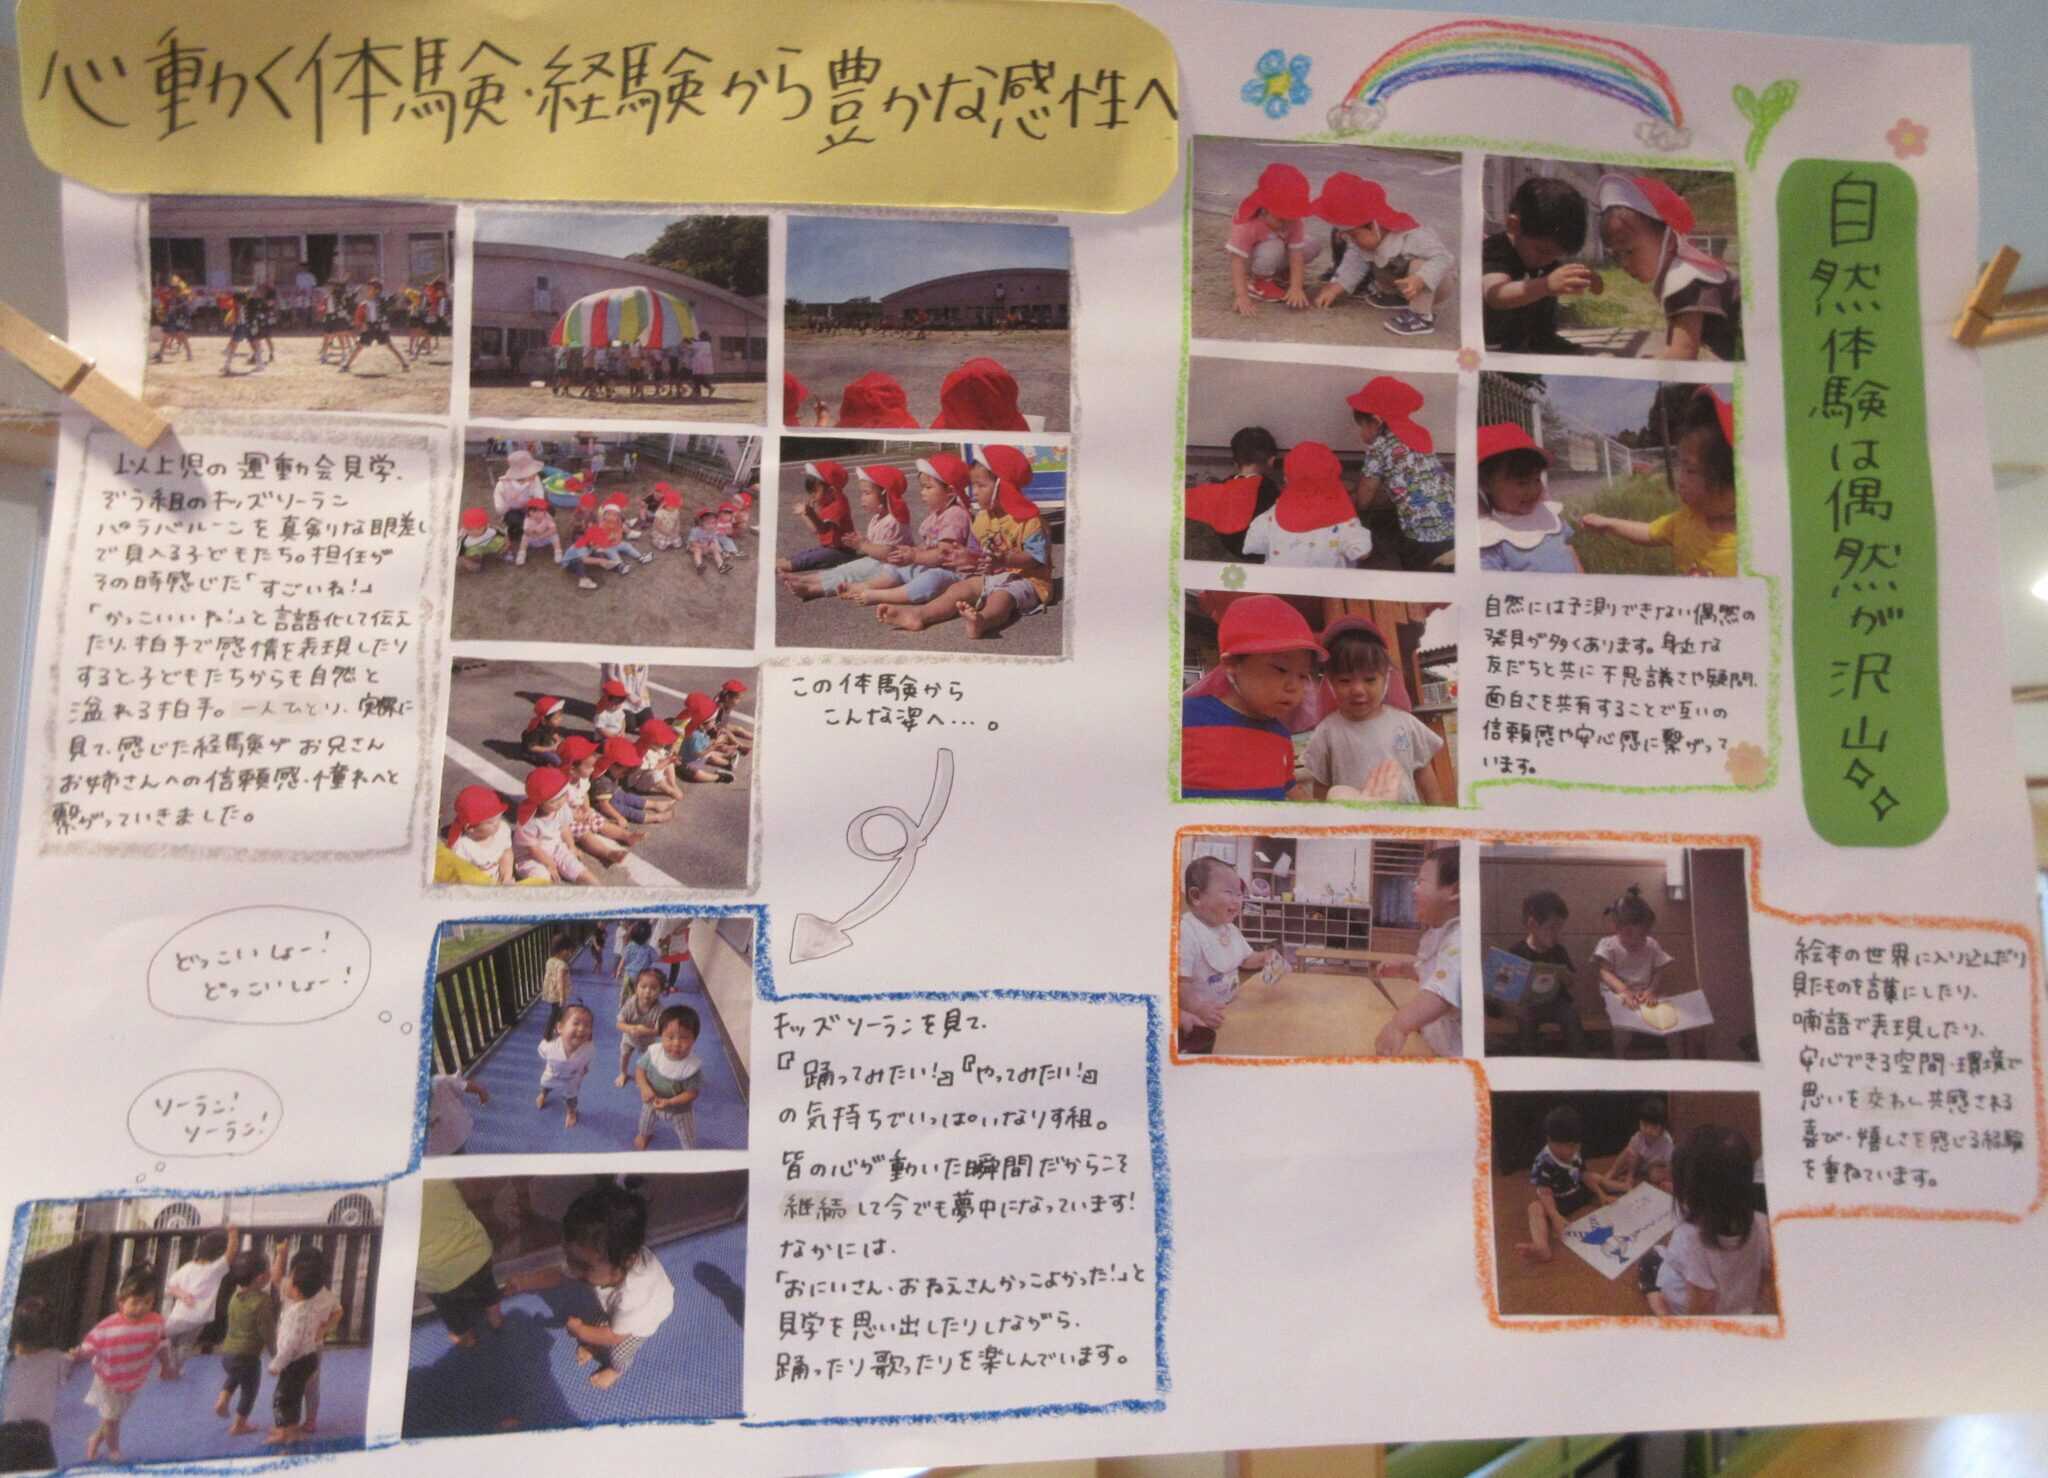 心動く体験・経験から豊かな感性へ
以上児の運動会見学、
ぞう組のキッズソーラン
パラバルーンを真剣な眼差し
で見入る子どもたち。担任が
その時感じた「すごいね!」
「かっこいいね!」と言語化して伝え
たり、拍手で感情を表現したり
すると、子どもたちからも自然と
溢れる拍手。一人ひとり、実際に
見て、感じた経験が お兄さん
お姉さんへの信頼感・憧れへと
繋がっていきました。
この体験から
こんな姿へ…。
どっこいしょー!
どっこいしょー!
ソーラン!
ソーラン!
キッズソーランを見て、
『踊ってみたい!』『やってみたい!』
の気持ちでいっぱいなりす組。
皆の心が動いた瞬間だからこそ
継続して今でも夢中になっています!
なかには、
「おにいさん・おねえさんかっこよかった!」と
見学を思い出したりしながら、
踊ったり歌ったりを楽しんでいます。
自然体験は偶然が沢山
自然には予測できない偶然の
発見が多くあります。身近な
友だちと共に不思議さや疑問、
面白さを共有することで互いの
信頼感や安心感に繋がって
います。
絵本の世界に入り込んだり
見たものを言葉にしたり、
喃語で表現したり、
安心できる空間・環境で
思いを交わし共感される
喜び・嬉しさを感じる経験
を重ねています。